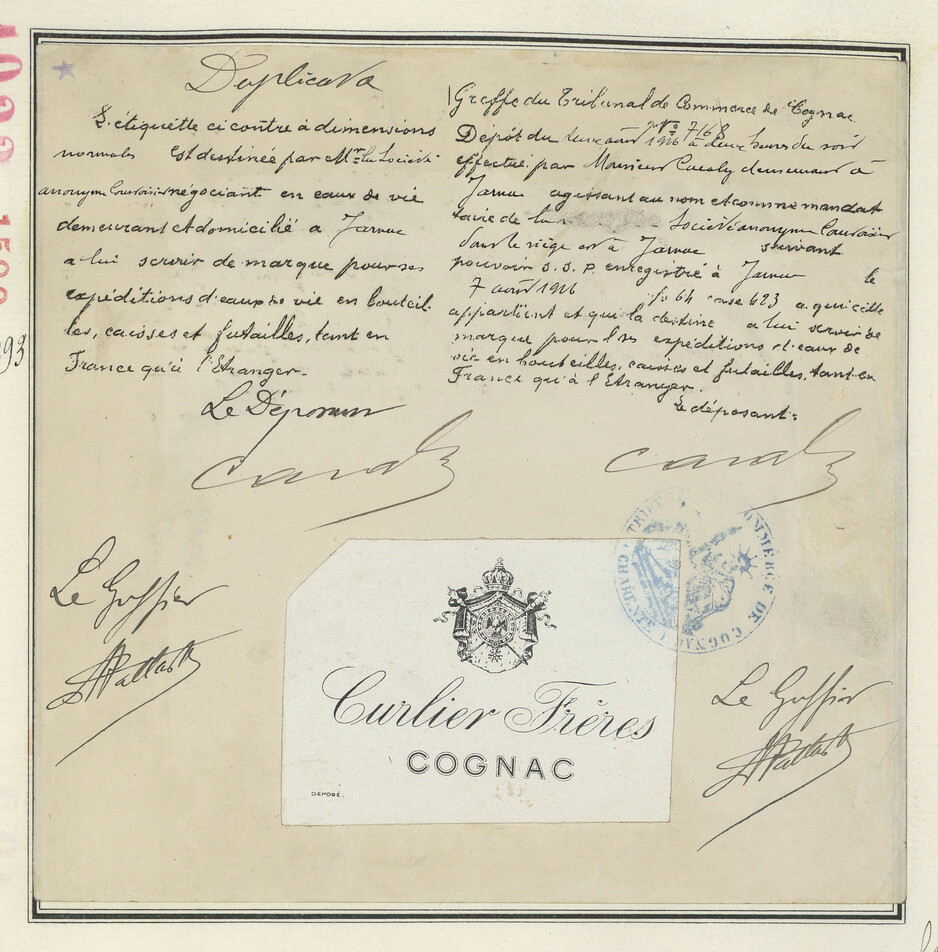 Duplicata
L'étiquette ci contre à dimensions
normales est destinée par Mr la Société
anonyme Courvoisier négociant en eaux de vie
demeurant et domicilié à Jarnac
a lui servir de marque pour ses
expéditions d'eaux de vie en bouteil-
les, caisses et futailles, tant en
France qu'à l'Etranger.
Le Déposant
Greffe du Tribunal de Commerce de Cognac
No 7168
Dépôt du 1916 à deux heures du soir
effectué par Monsieur demeurant à
Jarnac agissant au nom et comme mandat
taire de la Société anonyme Courvoisier
dont le siège est à Jarnac suivant
pouvoir S.S.P. enregistré à Jarnac le
7 avril 1916 fo 64 case 623 a qui elle
appartient et que la destine a lui servir de
marque pour ses expéditions d'eaux de
vie en bouteilles, caisses et futailles, tant en
France qu'à l'Etranger.
Le déposant:
Le Greffier
Le Greffier
COMMERCE DE COGNAC
Curlier Frères
COGNAC
DÉPOSÉ.
93